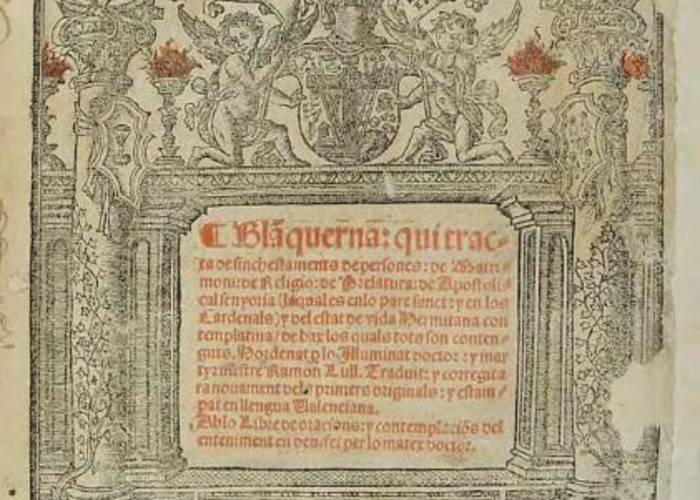 ¶ Blāquerna: qui trac-
ta de sinch estaments de persones: de Matri-
moni: de Religio: de Prelatura: de Apostoli-
cal senyoria (laqual es enlo pare sanct: y en los
Cardenals) y del estat de vida Hermitana con
templatiua / de bix los quals tots son conten-
guts. Hordenat p lo Illuminat doctor: y mar
tyr mestre Ramon Lull. Traduit: y corregit a
ra nouament dels primers originals: y estam-
pat en llengua Valenciana.
Ablo Libre de oracions: y contemplaciōs del
enteniment en deu / fet per lo matex doctor.